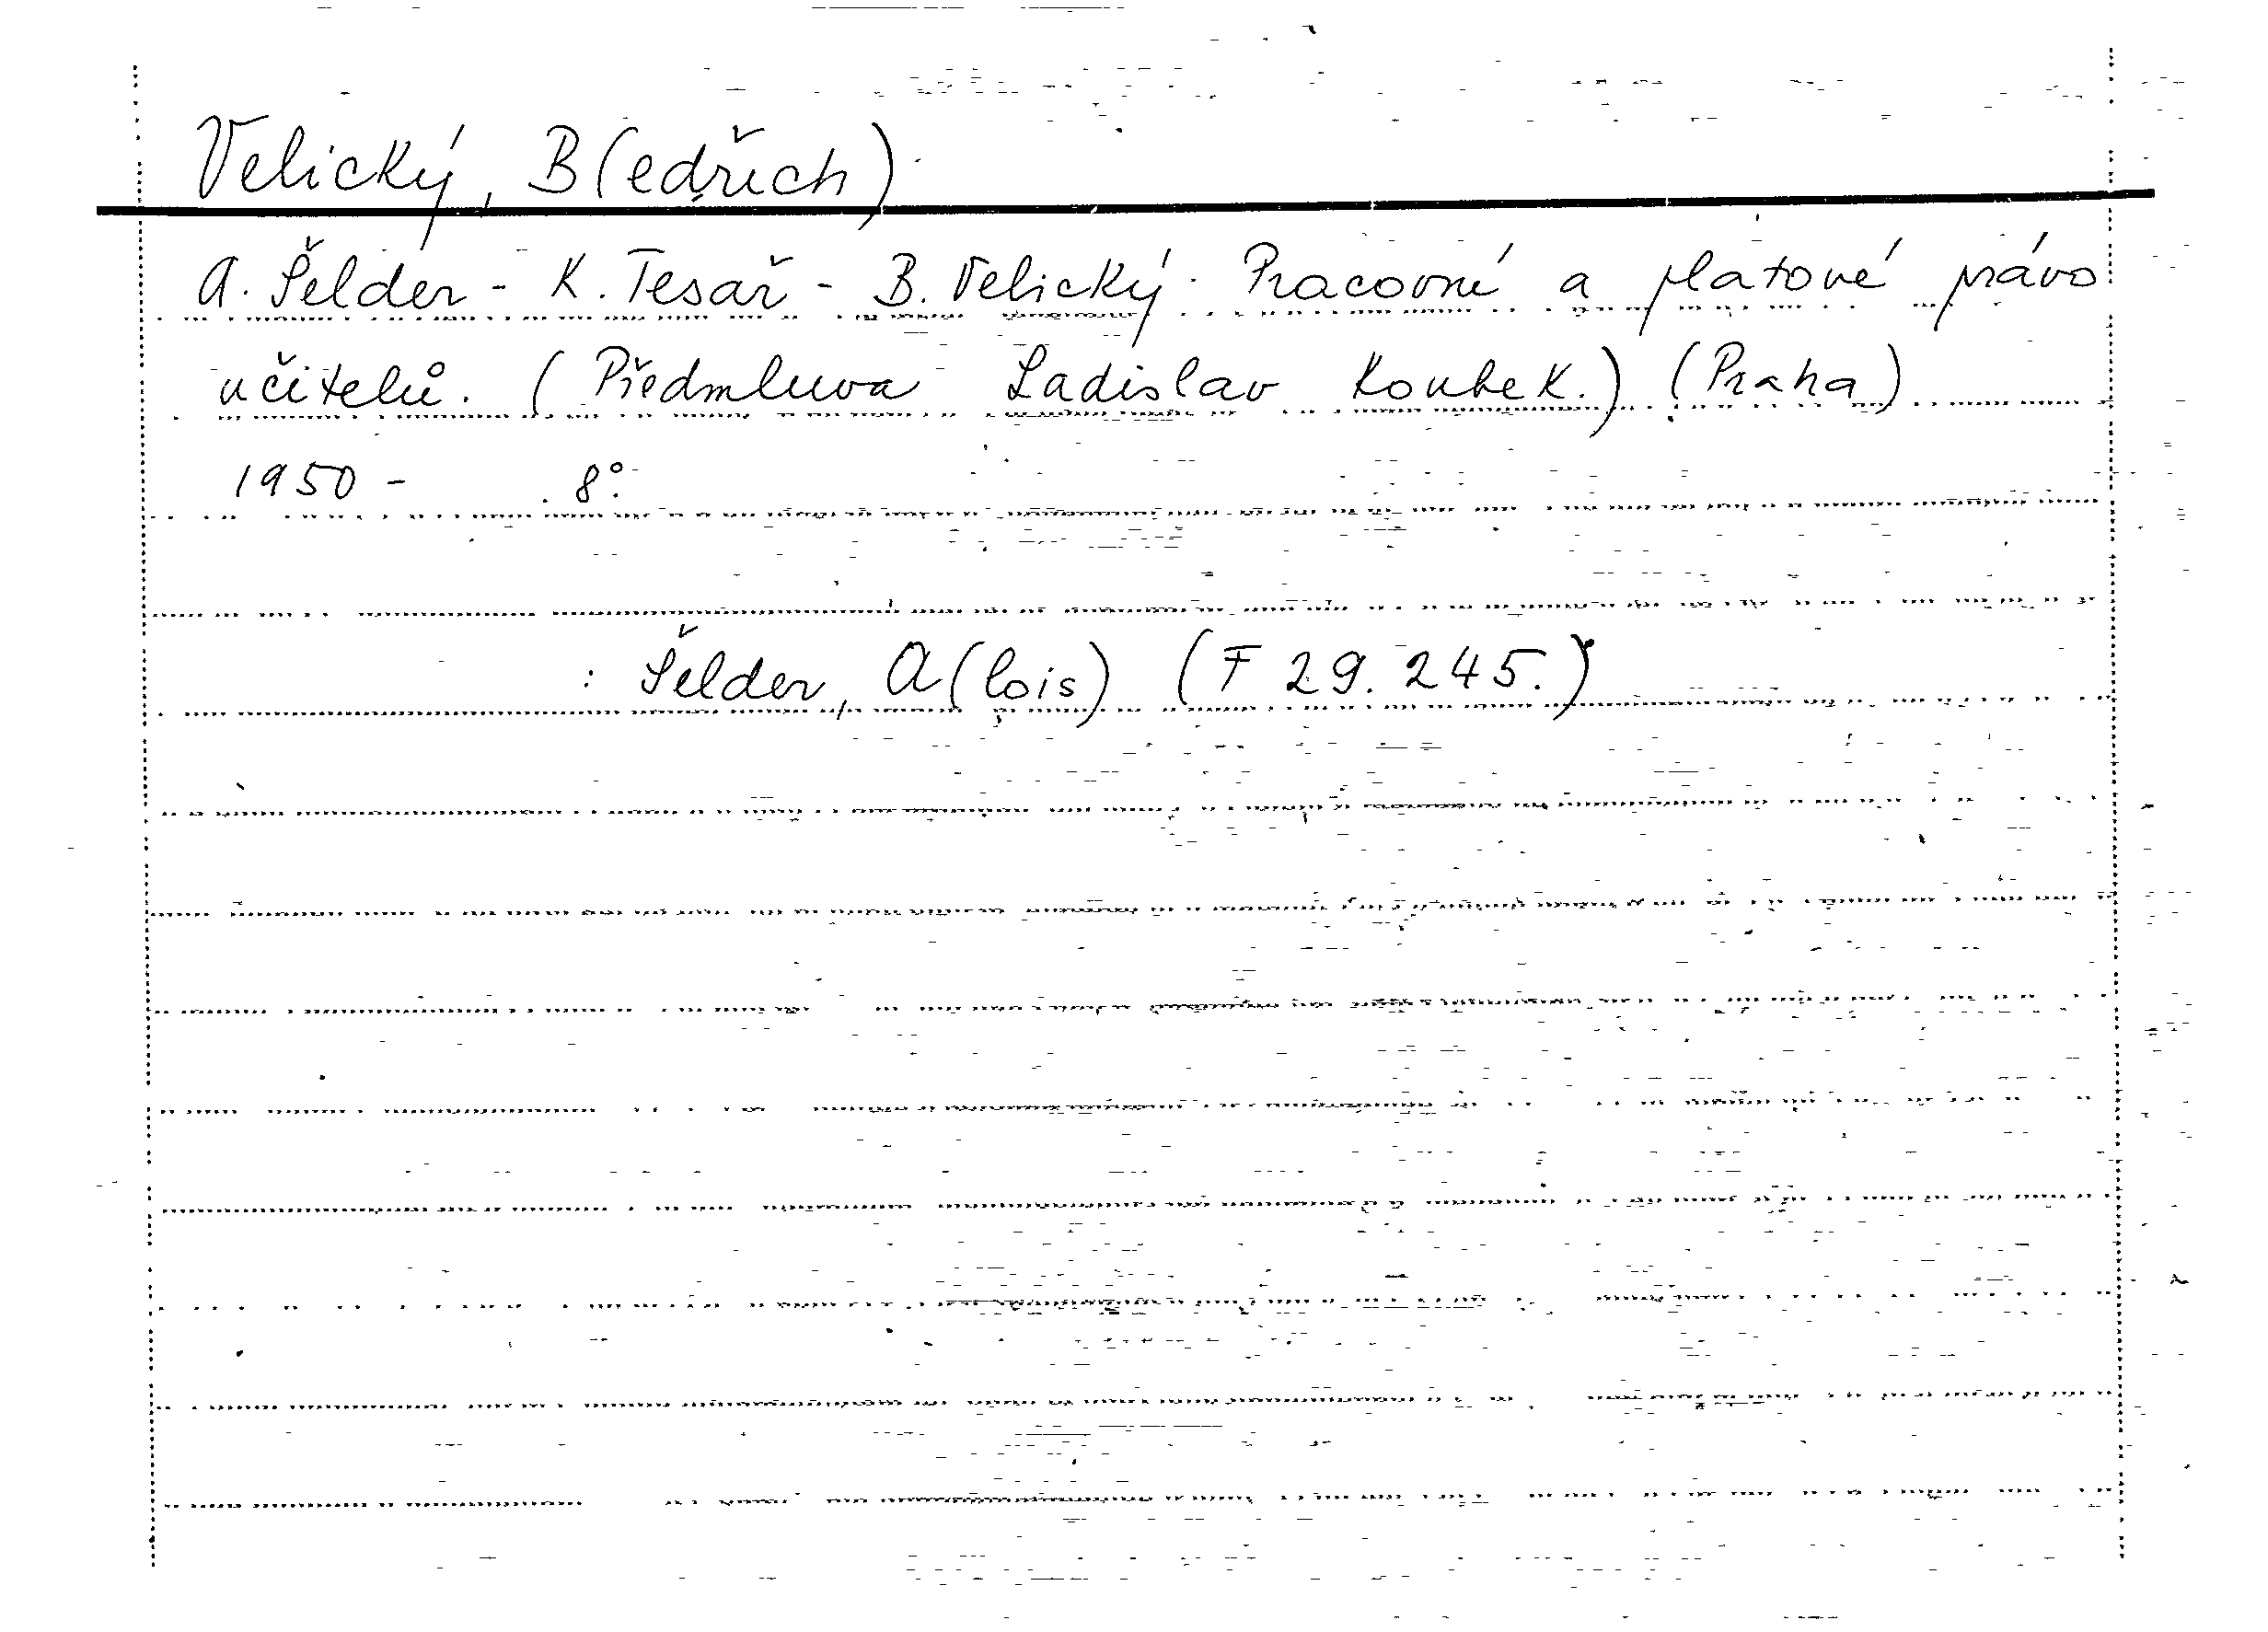 Velický, B(edřich)
A. Šelder - K. Tesař - B. Velický: Pracovné a platové právo
učitelů. (Předmluva Ladislav Koubek.) (Praha)
1950 - 8°.
: Šelder, A(lois) (F 29.245.)